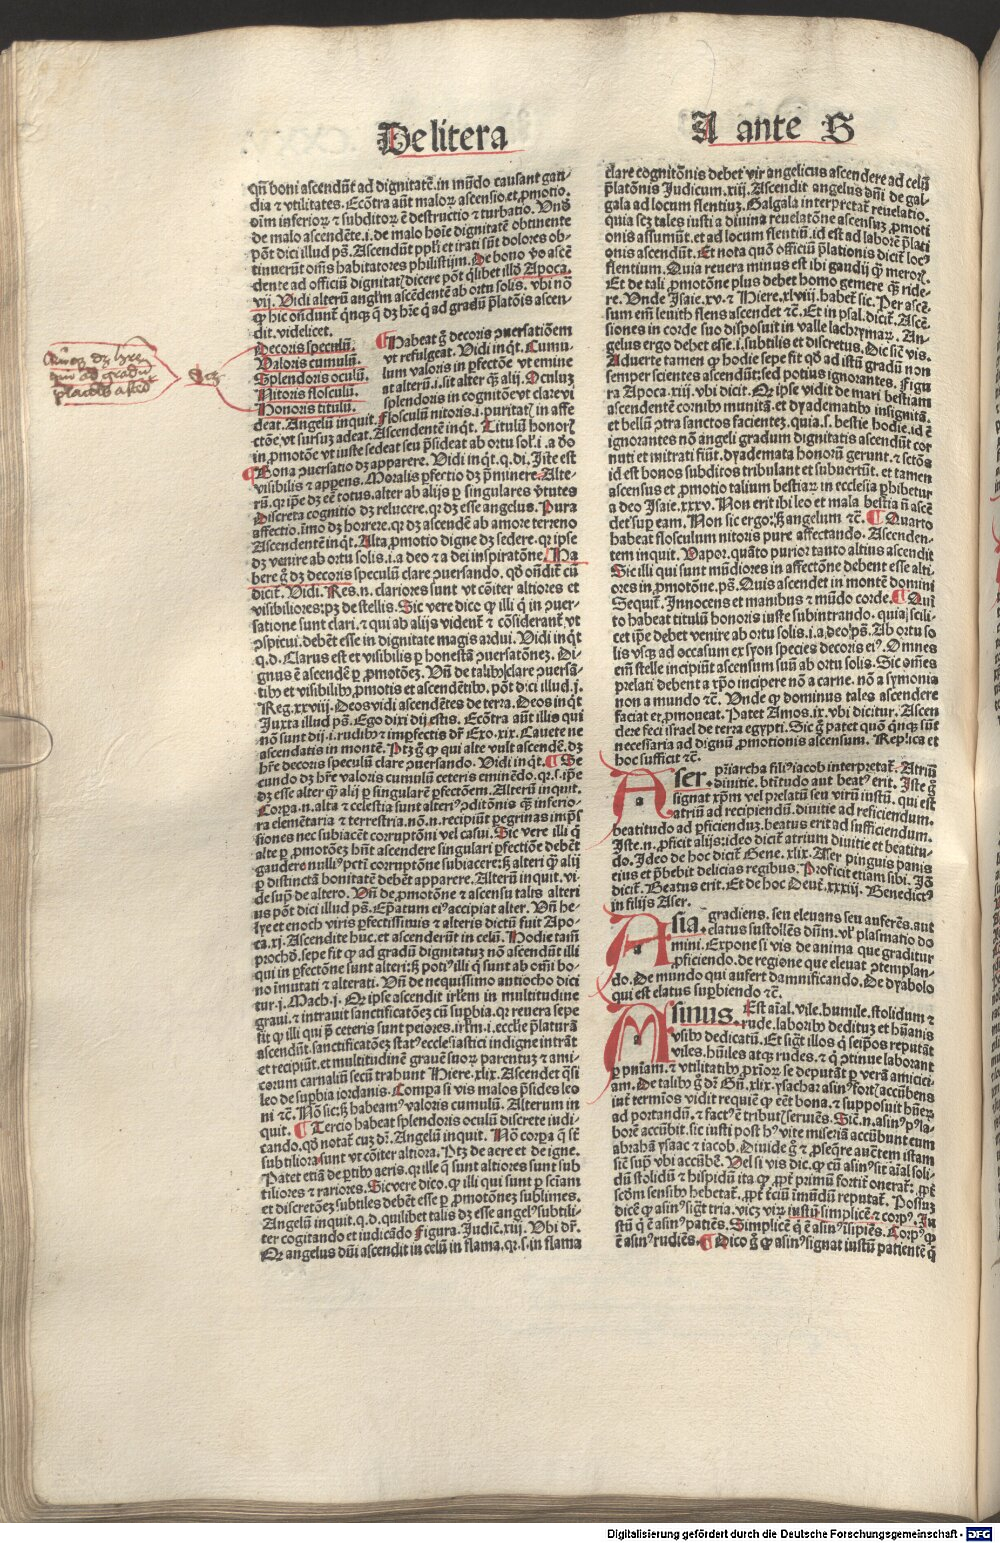 De litera
A ante S
qñ boni ascendũt ad dignitatẽ. in mũdo causant gau-
dia et vtilitates. Ecõtra aũt maloꝝ ascensio. et ꝓmotio.
dim inferioꝝ et subditoꝝ ẽ destructio et turbatio. Vnð
de malo ascendẽte .i. de malo hoĩe dignitatẽ obtinente
põt dici illud ps. Ascendũt ppli et irati sũt dolores ob-
tinuerũt oẽs habitatores philistijm. De bono ỹo ascẽ
dente ad officiũ dignitatꝭ dicere põt qlibet illð Apoca.
vij. Vidi alterũ anglm ascẽdentẽ ab ortu solis. vbi nõ
dit. videlicet.
Decoris speculũ.
Valoris cumulũ.
Splendoris oculũ.
Nitoris flosculũ.
Honoris titulũ.
Habeat gͦ decoris ꝯuersatiõem
vt refulgeat. Vidi inqͭ. Cumu-
lum valoris in ꝑfectõe vt emine
at alterũ .i. sit alter qͣꝫ alij. Oculuꝫ
splendoris in cognitõe vt clare vi
deat. Angelũ inquit. Flosculũ nitoris .i. puritatꝭ in affe
ctõe. vt sursuꝫ adeat. Ascendentẽ inqͭ. Titulũ honorꝭ
in ꝓmotõe vt iuste sedeat seu p̃sideat ab ortu solꝭ .i. a dõo
Bona ꝯuersatio dꝫ apparere. Vidi inqͭ. q.di. Iste est
visibilis et apparens. Moralis ꝑfectio dꝫ p̃minere. Alte-
rũ. qꝛ ip̃e dꝫ eẽ totus. alter ab alijs ꝑ singulares ỹtutes
Discreta cognitio dꝫ relucere. qꝛ dꝫ esse angelus. Pura
affectio. ĩmo dꝫ horrere. qꝛ dꝫ ascendẽ ab amore terreno
Ascendentẽ inqͭ. Alta ꝓmotio digne dꝫ sedere. qꝛ ipse
dꝫ venire ab ortu solis .i. a deo et a dei inspiratõne. Ha
bere gͦ dꝫ decoris speculũ clare ꝯuersando. qð oñdit cũ
dicit. Vidi. Res .n. clariores sunt vt cõiter altiores et
visibiliores: pꝫ de stellis. Sic vere dico qꝫ illi q̃ in ꝯuer-
satione sunt clari. et qui ab alijs vident et cõsiderant vt
ꝯspicui. debent esse in dignitate magis ardui. Vidi inqͭ
q.d. Clarus est et visibilis ꝑ honestã ꝯuersatõneꝫ. Di-
gnus ẽ ascendẽ ꝑ ꝓmotõeꝫ. Vñ de talibꝰ clare ꝯuersã-
tibꝰ et visibilibꝰ ꝓmotis et ascendẽtibꝰ. põt dici illud .j.
Reg. xxviij. Deos vidi ascendẽtes de terra. Deos inqͭ
Juxta illud ps. Ego dixi dij estis. Ecõtra aũt illis qui
nõ sunt dij .i. rudibꝰ et impfectis dr̃ Exo. xix. Cauete ne
ascendatis in montẽ. Ptꝫ gͦ qꝫ qui alte vult ascendẽ. dꝫ
hr̃e decoris speculũ clare ꝯuersando. Vidi inqͭ. Se
cundo dꝫ hr̃e valoris cumulũ ceteris eminẽdo. qꝛ .s. ip̃e
dꝫ esse alter qͣꝫ alij ꝑ singularẽ ꝑfectõem. Alterũ inquit.
Corꝑa .n. alta et celestia sunt alterꝰ ꝯditõnis qͣꝫ inferio-
ra elemẽtaria et terrestria. nõ .n. recipiũt ꝑegrinas imp̃s
siones nec subiacẽt corruptõni vel casui. Sic vere illi q̃
alte ꝑ ꝓmotõeꝫ hñt ascendere singulari ꝑfectiõe debẽt
gaudere nulliꝰ pcti corruptõne subiacere: sꝫ alteri qͣꝫ alij
ꝑ distinctã bonitatẽ debẽt apparere. Alterũ inquit. vi-
de supͣ de altero. Vñ de ꝓmotõne et ascensu talis alteri
us põt dici illud ps. Ep̃atum eiꝰ accipiat alter. Vñ he-
lye et enoch viris ꝑfectissimis et alteris dictũ fuit Apo-
ca. xj. Ascendite huc. et ascenderũt in celũ. Hodie tam̃
prochð. sepe fit qꝫ ad gradũ dignitatuꝫ nõ ascendũt illi
qui in ꝑfectõne sunt alteri: sꝫ potiꝰ illi q̃ sunt ab om̃i bo-
no ĩmutati et alterati. Vñ de nequissimo antiocho dici
tur .j. Mach. j. Qꝛ ipse ascendit irlem in multitudine
graui. et intrauit sanctificatõeꝫ cũ suꝑbia. qꝛ reuera sepe
fit qꝫ illi qui p̃ ceteris sunt peiores. irlm .i. ecclie p̃laturã
ascendũt. sanctificatõeꝫ statꝰ ecclesiastici indigne intrãt
et recipiũt. et multitudinẽ grauẽ suoꝝ parentuꝫ et ami-
corum carnaliũ secũ trahunt Hiere. xlix. Ascendet qͣsi
leo de suꝑbia iordanis. Comꝑa si vis malos p̃sides leo
ni etc̃. Nõ sic: sꝫ habeamꝰ valoris cumulũ. Alterum in
quit. Tercio habeat splendoris oculũ discrete iudi-
cando. qð notat cuꝫ dr̃. Angelũ inquit. Nõ corꝑa q̃ st̃
subtiliora sunt vt cõiter altiora. Ptꝫ de aere et de igne.
Patet etiã de ꝑtibꝰ aeris. qꝛ ille q̃ sunt altiores sunt sub
tiliores et rariores. Sic vere dico. qꝫ illi qui sunt ꝑ sciam
et discretõeꝫ subtiles debẽt esse ꝑ ꝓmotõneꝫ sublimes.
Angelũ inquit. q.d. quilibet talis dꝫ esse angelꝰ subtili-
ter cogitando et iudicãdo Figura. Judic̃. xiij. Vbi dr̃.
Qꝛ angelus dñi ascendit in celũ in flama. qꝛ .s. in flama
clare cognitõnis debet vir angelicus ascendere ad celũ
p̃latõnis Judicum. xij. Ascendit angelus dñi de gal-
gala ad locum flentiuꝫ. Galgala interpretat reuelatio.
quia scꝫ tales iusti a diuina reuelatõne ascensuꝫ ꝓmoti
onis assumũt. et ad locum flentiũ. id est ad laborẽ p̃lati
onis ascendũt. Et nota quð officiũ p̃lationis dicit locꝰ
flentium. Quia reuera minus est ibi gaudij qͣꝫ meroꝝ.
Et de tali ꝓmotõne plus debet homo gemere qͣꝫ ride-
re. Vnde Isaie. xv. et Hiere. xlviij. habet sic. Per ascẽ-
sum em̃ leuith flens ascendet etc̃. Et in psal. dicit. Ascẽ-
siones in corde suo disposuit in valle lachrymaꝝ. An-
gelus ergo debet esse .i. subtilis et discretus. Dic si vis.
Aduerte tamen qꝫ hodie sepe fit qð ad istũ gradũ non
semper scientes ascendũt: sed potius ignorantes. Figu
ra Apoca. xiij. vbi dicit. Qꝛ ipse vidit de mari bestiam
ascendentẽ cornibꝰ munitã. et dyadematibꝰ insignitã.
et bellũ ꝯtra sanctos facienteꝫ. quia .s. bestie hodie. id ẽ
ignorantes nõ angeli gradum dignitatis ascendũt cor
nuti et mitrati fiũt. dyademata honorũ gerunt. et sctõs
id est bonos subditos tribulant et subuertũt. et tamen
ascensus et ꝓmotio talium bestiaꝝ in ecclesia ꝓhibetur
a deo Isaie. xxxv. Non erit ibi leo et mala bestia ñ ascẽ
det suꝑ eam. Non sic ergo: sꝫ angelum etc̃. Quarto
habeat flosculum nitoris pure affectando. Ascenden-
tem inquit. Vapor. quãto purior tanto altius ascendit
Sic illi qui sunt mũdiores in affectõne debent esse alti
ores in ꝓmotõne. ps. Quis ascendet in montẽ domini
Sequit. Innocens et manibus et mũdo corde. Quĩ
to habeat titulũ honoris iuste subintrando. quia .scili-
cet ip̃e debet venire ab ortu solis .i. a deo. ps. Ab ortu so
lis vsqꝫ ad occasum ex syon species decoris eiꝰ. Omnes
em̃ stelle incipiũt ascensum suũ ab ortu solis. Sic oẽs
prelati debent a xp̃o incipere nõ a carne. nõ a symonia
non a mundo etc̃. Vnde qꝫ dominus tales ascendere
faciat et ꝓmoueat. Patet Amos. ix. vbi dicitur. Ascen
dere feci israel de terra egypti. Sic gͦ patet quõ qͥnqꝫ sũt
necessaria ad dignũ ꝓmotionis ascensum. Replica et
hoc sufficit etc̃.
Aser. pr̃iarcha filiꝰ iacob interpretat. Atriũ
diuitie. btĩtudo aut beatꝰ erit. Iste gͦ
signat xp̃m vel prelatũ seu virũ iustũ. qui est
atriũ ad recipiendũ. diuitie ad reficiendum.
beatitudo ad ꝑficienduꝫ. beatus erit ad sufficiendum.
Iste .n. ꝓficit alijs: ideo dicit atrium diuitie et beatitu-
do. Ideo de hoc dicit Gene. xlix. Aser pinguis panis
eius et p̃bebit delicias regibus. Proficit etiam sibi. Iõ
dicit. Beatus erit. Et de hoc Deut. xxxiij. Benedictꝰ
in filijs Aser.
Asia. gradiens. seu eleuans seu auferẽs. aut
elatus sustollẽs dñm. vl plasmatio do
mini. Expone si vis de anima que graditur
ꝓficiendo. de regione que eleuat ꝯtemplan-
do. De mundo qui aufert damnificando. De dyabolo
qui est elatus suꝑbiendo etc̃.
Asinus. Est aĩal. vile. humile. stolidum et
rude. laboribꝰ dedituꝫ et hũanis
vsibꝰ dedicatũ. Et sigͭ illos q̃ seip̃os reputãt
viles. hũiles atqꝫ rudes. et q̃ ꝯtinue laborant
ꝑ pñiam. et vtilitatibꝰ ꝓxĩoꝝ se deputãt ꝑ verã amicici-
am. De talibꝰ gͦ dr̃ Gñ. xlix. ysachar asinꝰ fortꝭ accũbens
int̃ termĩos vidit requiẽ qꝫ eẽt bona. et supposuit hũeꝝ
ad portandũ. et factꝰ ẽ tributꝭ seruiẽs. Sic .n. asinꝰ pꝰ la-
borẽ accũbit. sic iusti post hꝰ vite miseriã accũbunt eum
abrahã ysaac et iacob. Diuide gͦ et ꝓseqͣre auctem istam
sic̃ supͣ vbi accũbẽ. Vel si vis dic. qꝫ cũ asinꝰ sit aĩal soli-
dũ stolidũ et hispidũ ita qꝫ ꝓpt̃ primũ fortit̃ onerat. ꝓpt̃
scðm sensibꝰ hebetat. ꝓpt̃ tciũ ĩmũdũ reputat. Possuꝫ
dicẽ qꝫ asinꝰ sigͭ tria. viꝫ viꝝ iustũ simplicẽ et corpꝰ. Iu
stũ q̃ ẽ asinꝰ patiẽs. Simplicẽ q̃ ẽ asinꝰ ĩsipiẽs. Corpꝰ qꝫ
ẽ asinꝰ rudiẽs. Dico gͦ qꝫ asinꝰ signat iustũ patientẽ q̃
Digitalisierung gefördert durch die Deutsche Forschungsgemeinschaft - DFG